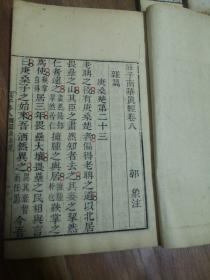 莊子南華真經卷八
郭象注
雜篇
庚桑楚第二十三
老聃之役有庚桑楚者偏得老聃之道以北居
畏壘之山其臣之畫然知者去之其妾之挈然
仁者遠之擁腫之與居鞅掌之
爲使居三年畏壘大壤畏壘之民相與言
曰庚桑子之始來吾洒然異之今吾